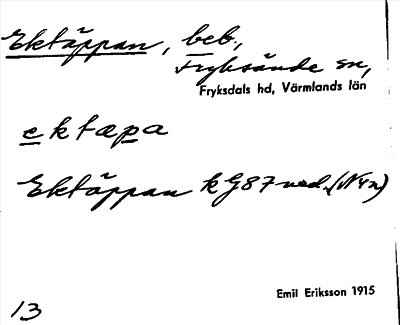 Ektäppan, beb.,
Fryksände sn,
Fryksdals hd, Värmlands län
ektæpa
Ektäppan kG87 ned. (N4n)
Emil Eriksson 1915
13